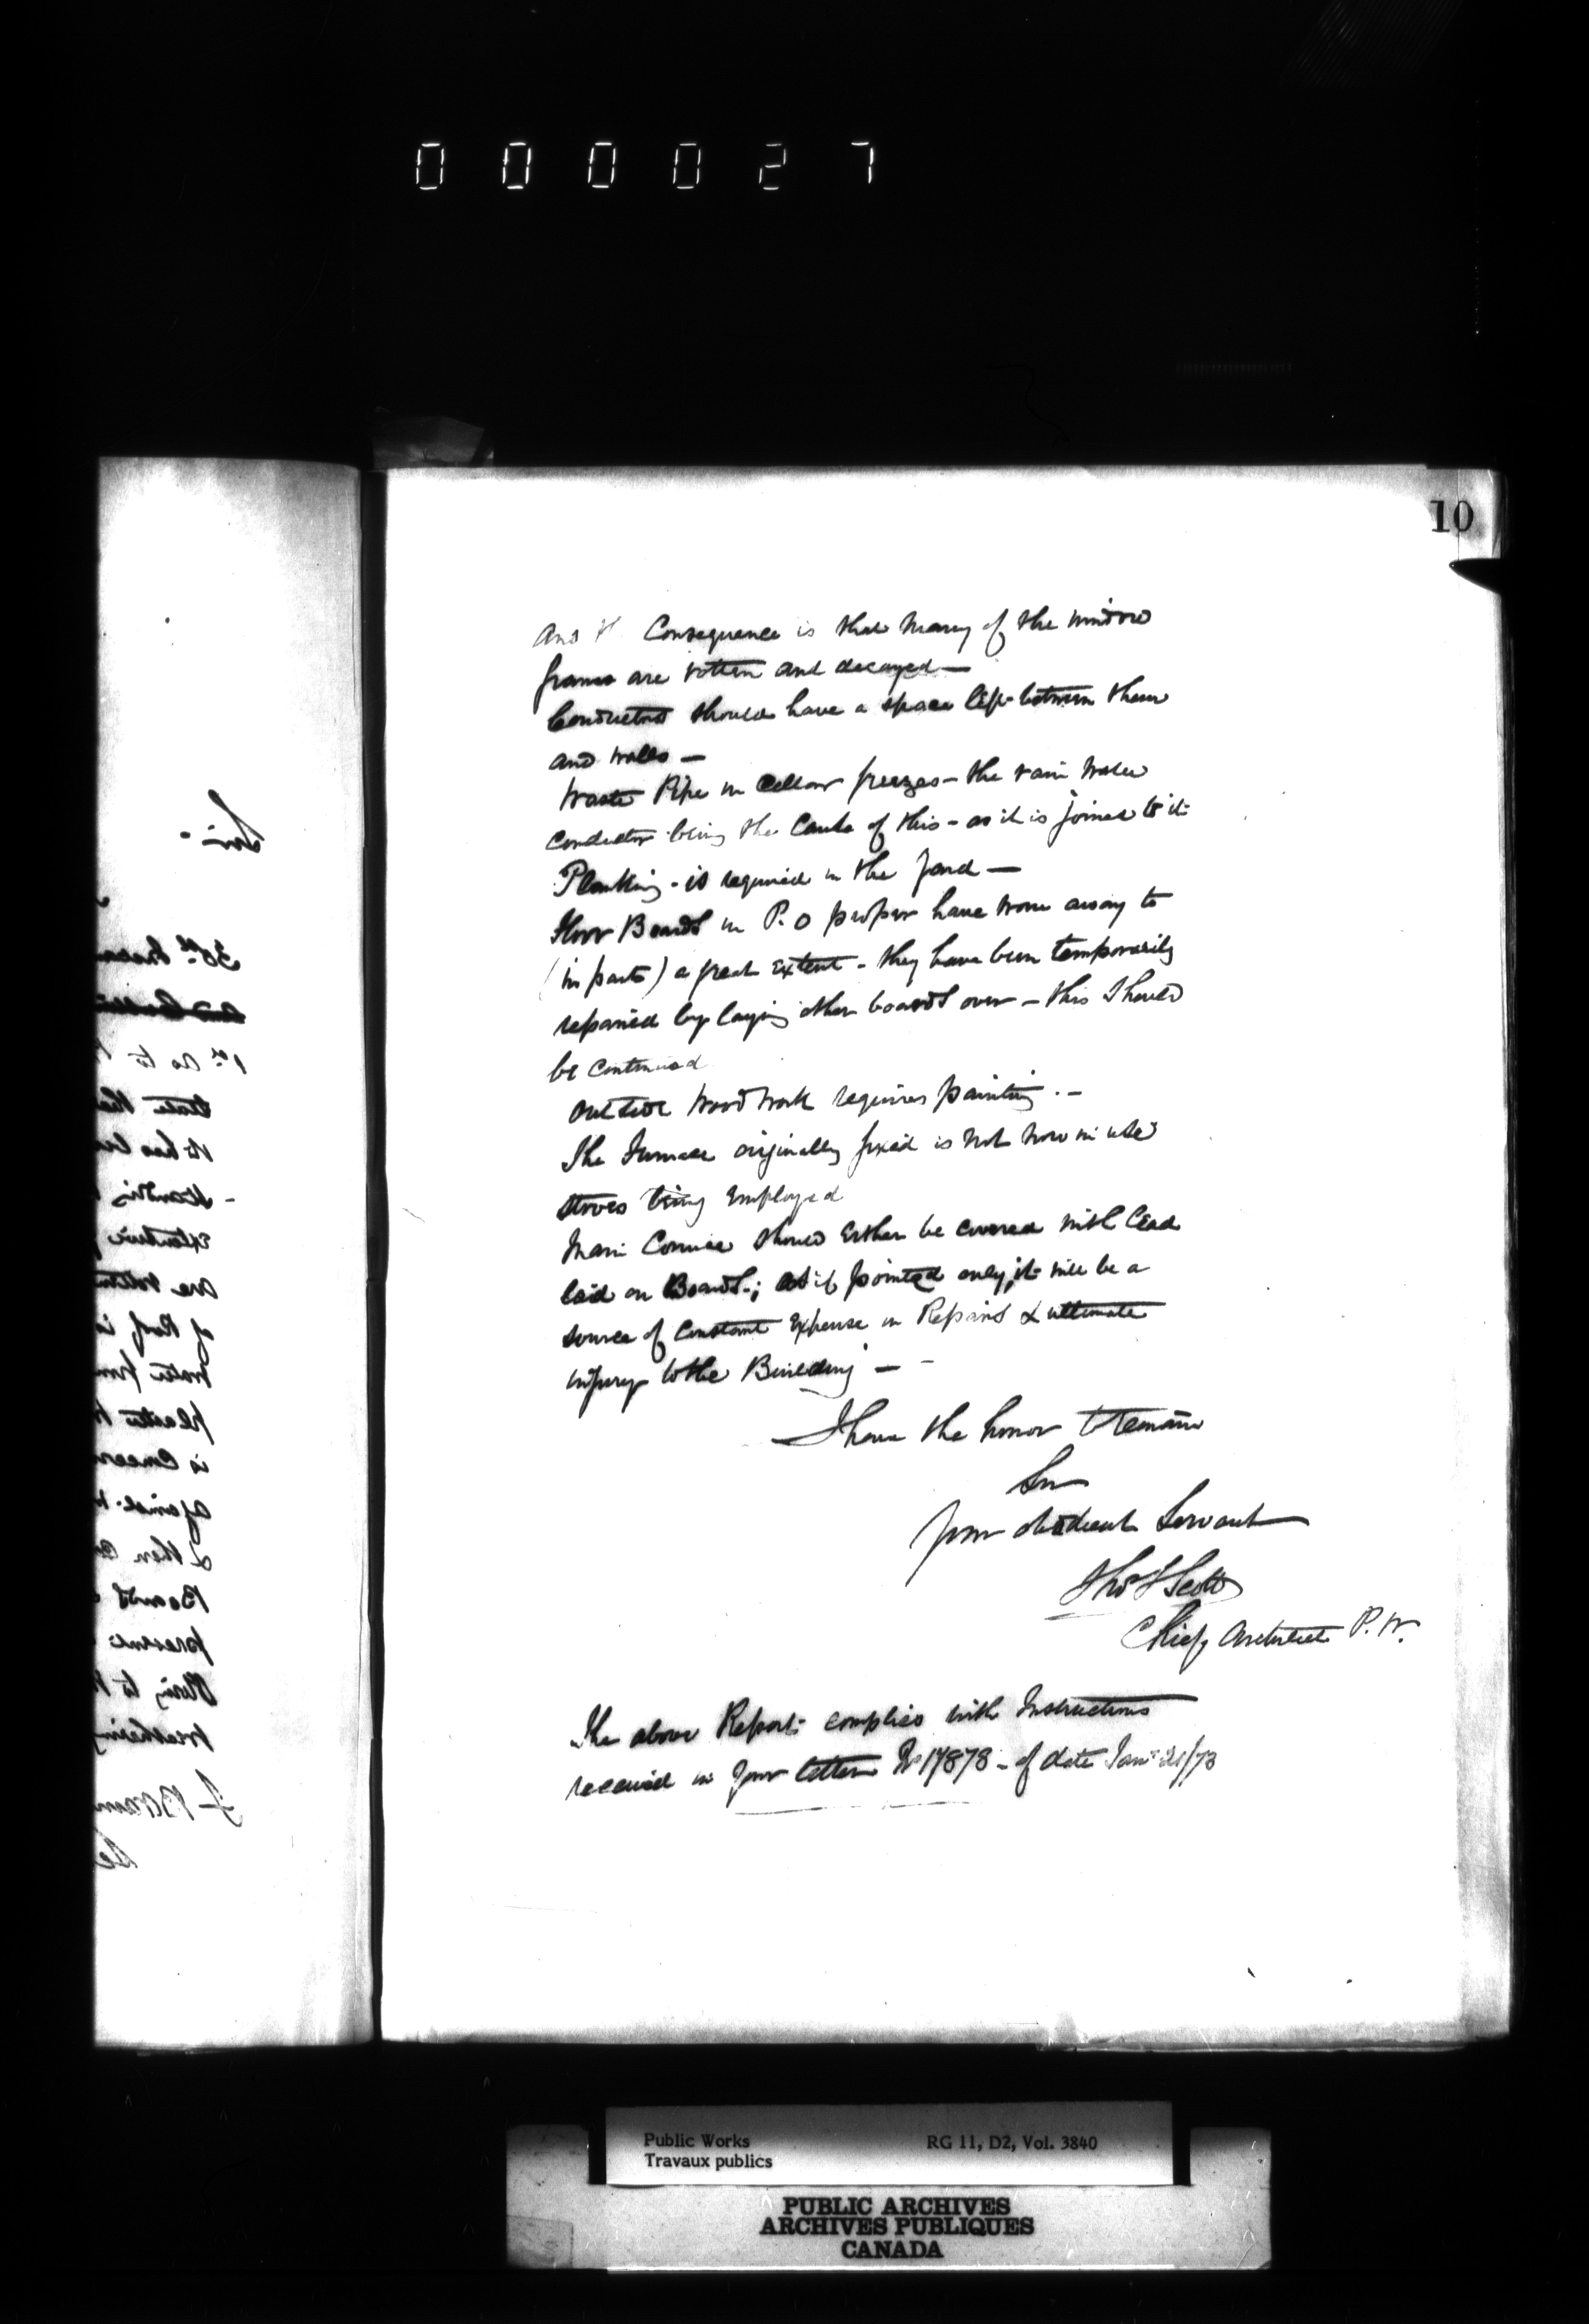 000027
10
And the Consequence is that many of the window
frames are rotten and decayed —
Conductors should have a space left between them
and walls —
Waste Pipe in Cellar freezes — the rain water
conductor being the Cause of this - as it is joined to it
Planking - is required in the yard —
Floor Boards in P. O proper have worn away to
(in parts) a great extent - they have been temporarily
repaired by laying other boards over — this should
be continued
outside wood work requires painting . —
The Furnace originally fixed is not now in use
stoves being employed
Main Cornice should either be covered with lead
laid on Boards ; as if pointed only, it will be a
source of Constant Expense in Repairs & ultimate
injury to the Building —
I have the honor to remain
Sir
your obedient Servant
Thos S Scott
Chief Architect P. W.
The above Report complies with Instructions
received in your letter No 17878 - of date Jany 21/73
Sir -
30th
1st as to
state
it has
Standing
extensive
are
of Roof is
water from
plaster
is
against
& then
Boards
present
Owing to
Public Works
Travaux publics
RG 11, D2, Vol. 3840
PUBLIC ARCHIVES
ARCHIVES PUBLIQUES
CANADA